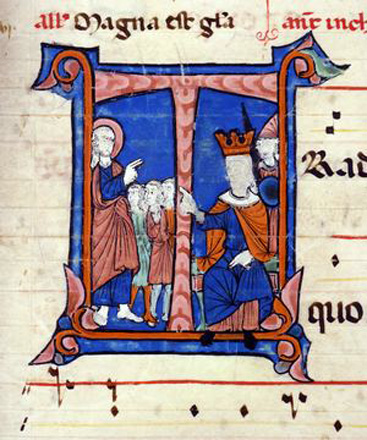 all' Magna est gl'a
ant' inch
Rad
quo